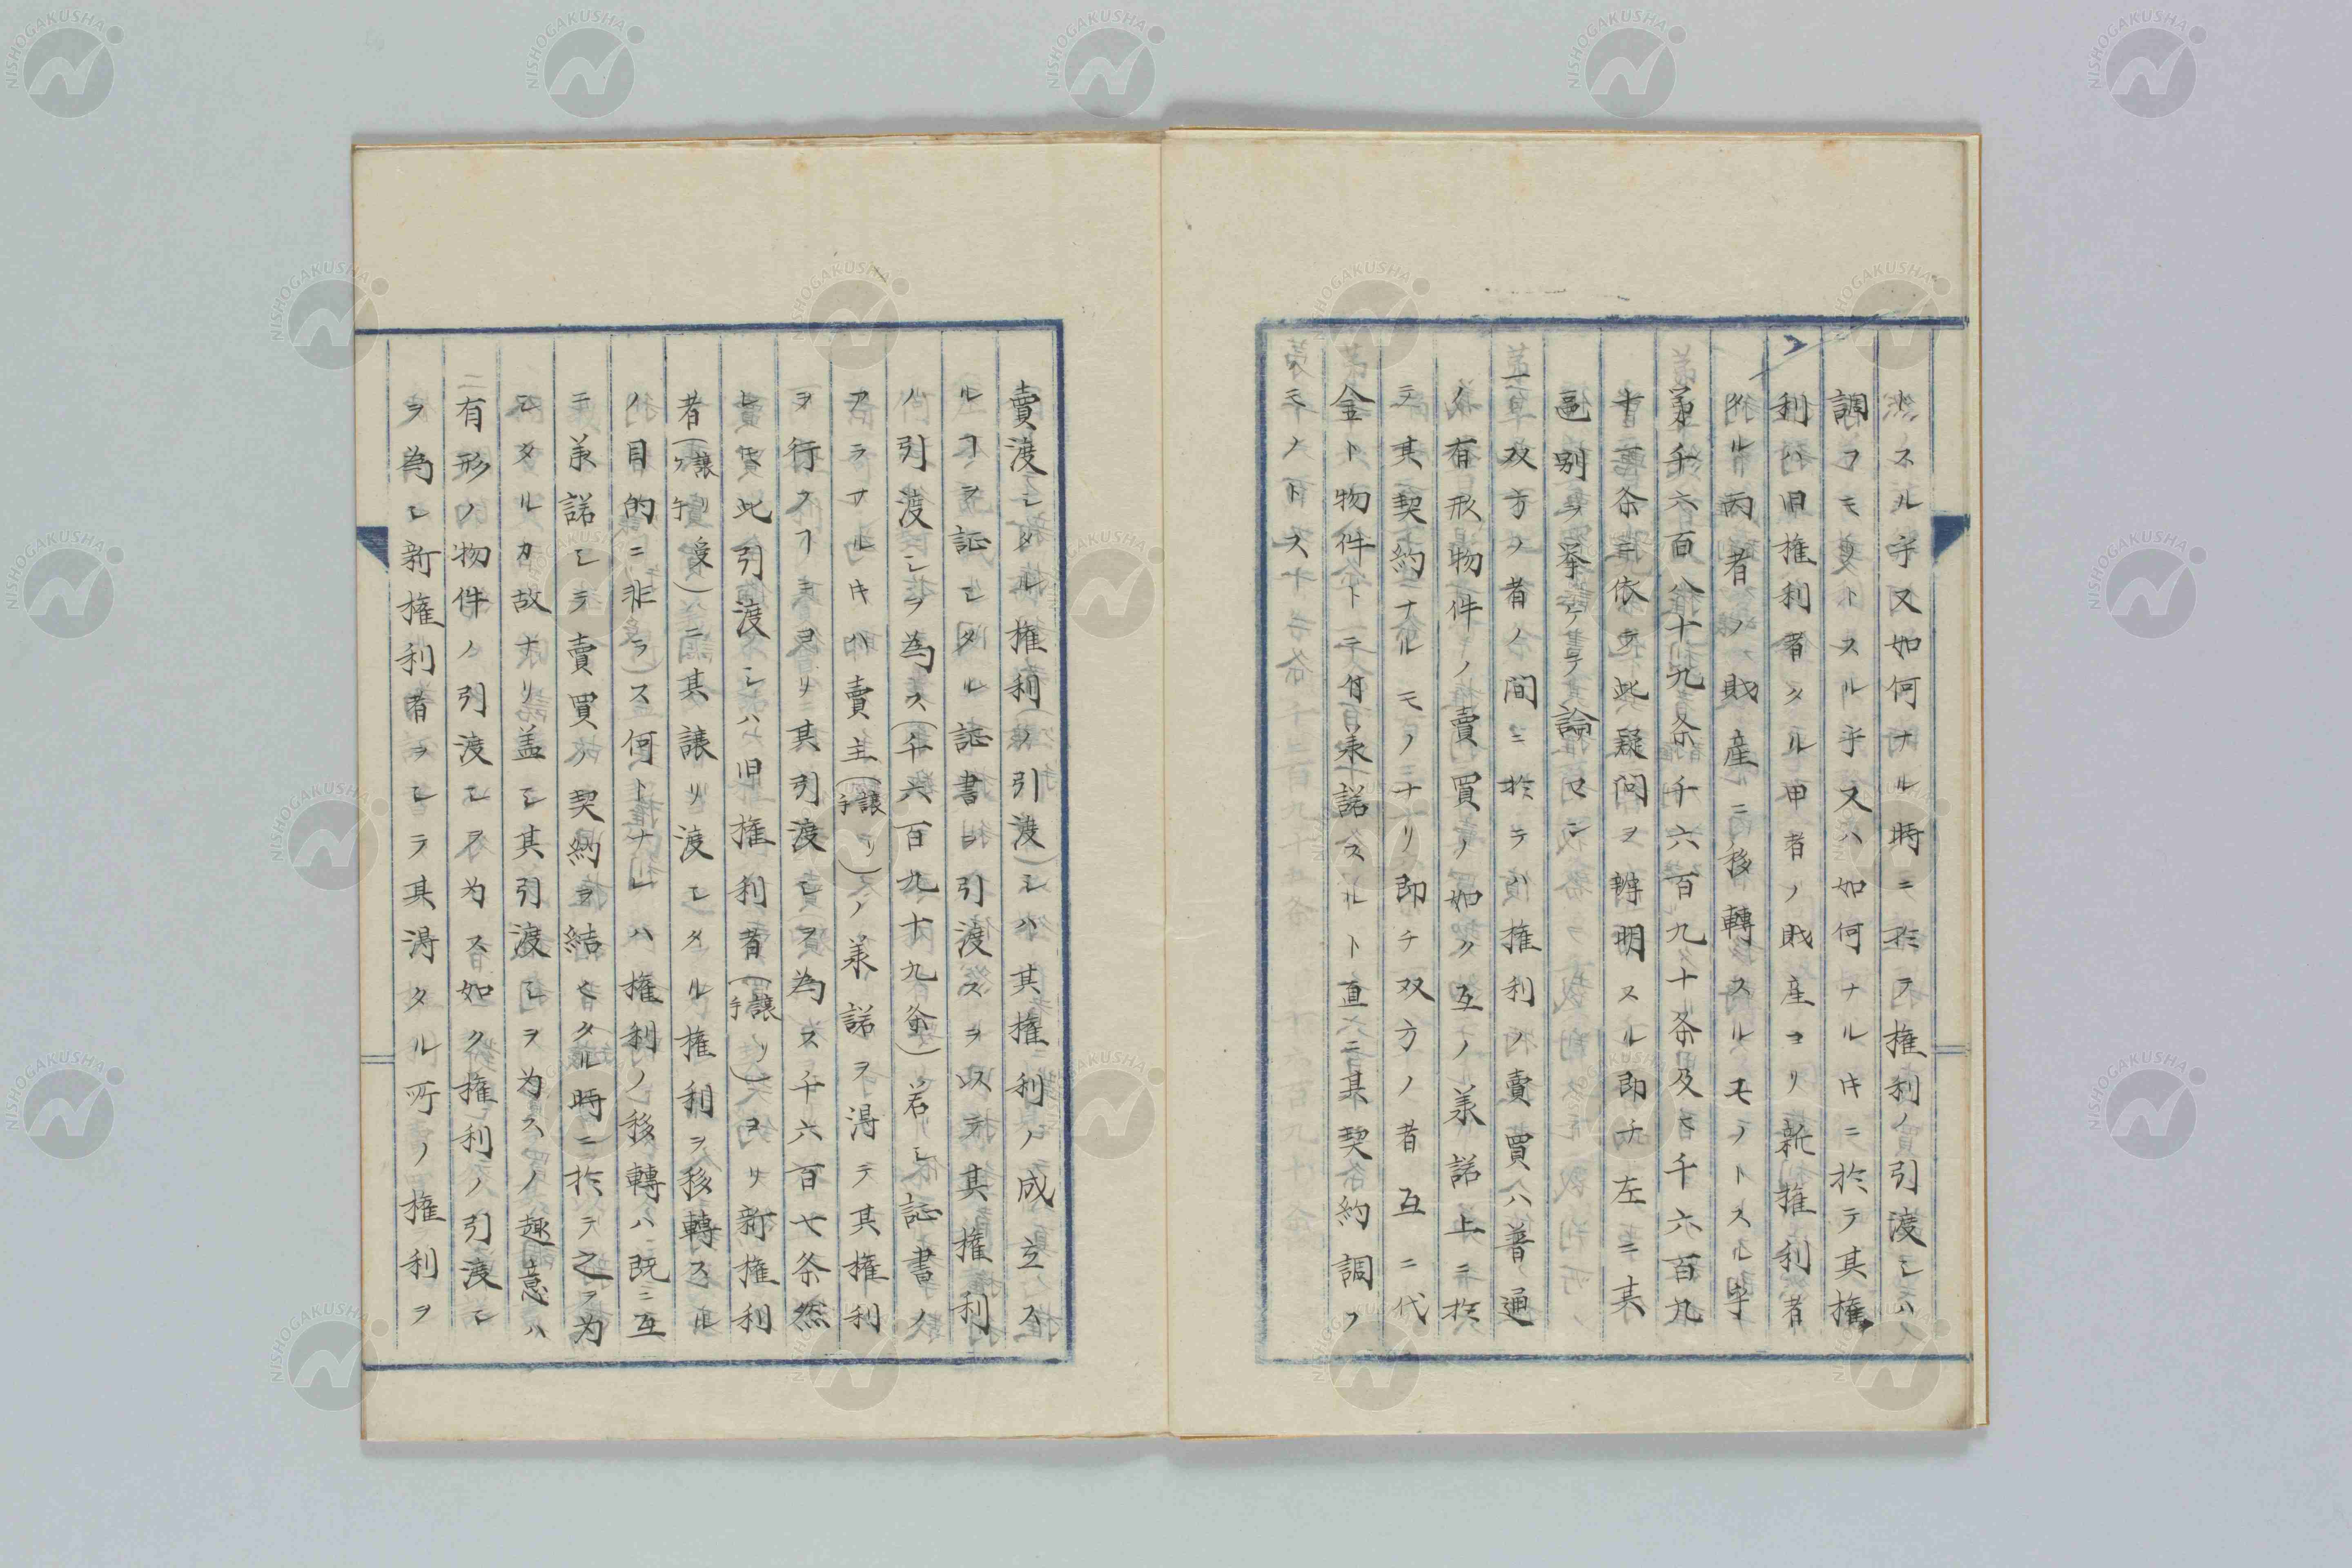 トスル乎又如何ナル時ニ於テ権利ノ引渡シハ
調フモノトスル乎又ハ如何ナルキニ於テ其権
利ハ旧権利者タル甲者ノ財産ヨリ新権利者
タル丙者ノ財産ニ移轉スルモノトスル乎
第千六百八十九条千六百九十条及ヒ千六百九
十一条ニ依テ此疑問ヲ辨明スル即チ左ニ其
區別ヲ挙ケテ論セン
一双方ノ者ノ間ニ於テハ債権利ノ賣買ハ普通
ノ有形物件ノ賣買ノ如ク互ノ承諾上ニ於
テ其契約ナルモノナリ即チ双方ノ者互ニ代
金ト物件トニ付承諾スルト直ニ其契約調フ
モノトス
賣渡シタル権利ノ引渡シハ其権利ノ成立ス
ルヿヲ証シタル証書ヲ引渡スヲ以テ其権利
ノ引渡シヲ為ス(千六百九十九条)若シ証書ノ
アラサルキハ賣主(譲リ手)ノ承諾ヲ得テ其権利
ヲ行フヿヨリ其引渡シヲ為ス千六百七条然
レ𪜈此引渡シハ旧権利者(譲リ手)ヨリ新権利
者(譲リ受ケ手)ニ其譲リ渡シタル権利ヲ移轉スル
ノ目的ニ非ラス何トナレハ権利ノ移轉ハ既ニ互
ニ承諾シテ賣買ノ契約ヲ結ヒタル時ニ於テ之ヲ為
シタルカ故ナリ盖シ其引渡シヲ为スノ趣意ハ
有形ノ物件ノ引渡シヲ为ス如ク権利ノ引渡シ
ヲ為シ新権利者ヲシテ其得タル所ノ権利ヲ
NISHOGAKUSHA